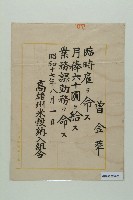 曽金萃
臨時雇ヲ命ス
月俸六十圓ヲ給ス
業務課勤務ヲ命ス
昭和十七年八月一日
高雄州米穀納入組合